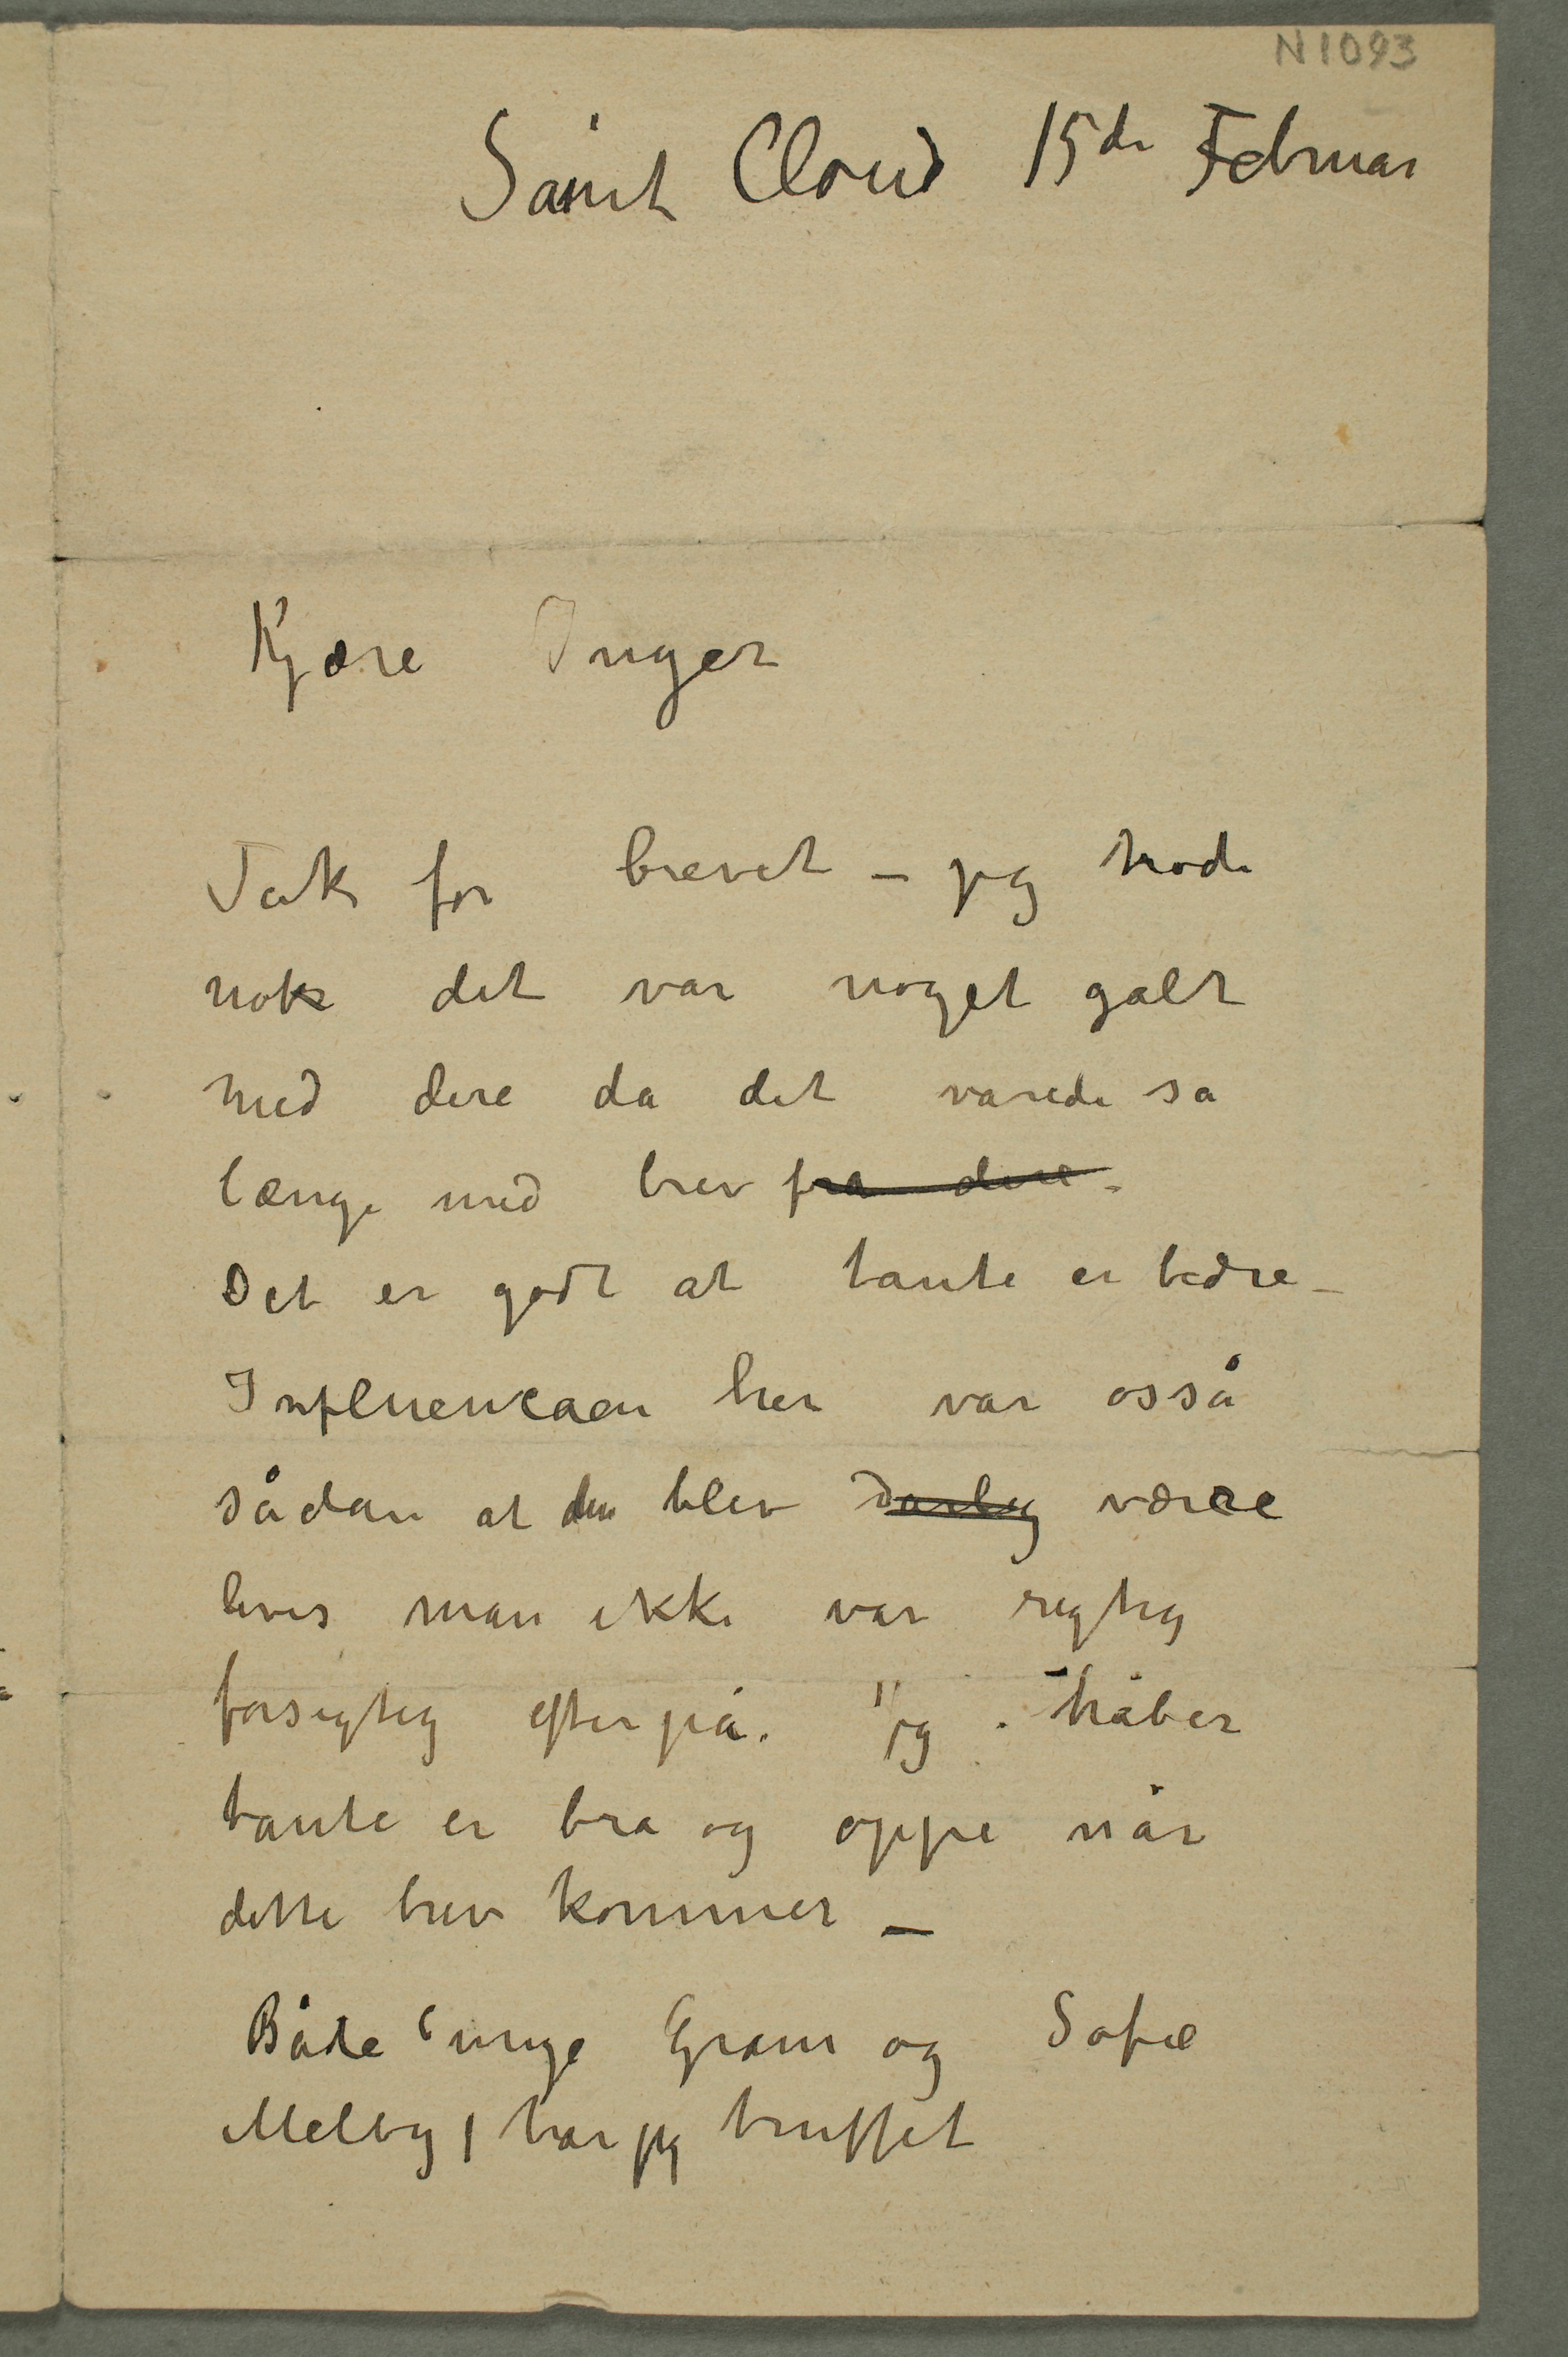 N 1093
Saint Cloud 15de Februar
Kjære Inger
Tak for brevet – jeg trode
nok det var noget galt
med dere da det varede sa
længe med brev fra dere –
Det er godt at tante er bedre –
Influencaen her var osså
sådan at den blev darlig værre
hvis man ikke var rigtig
forsigtig efterpå. Jeg håber
tante er bra og oppe når
dette brev kommer –
Både unge Gram og Sofie
Melby har jeg truffet